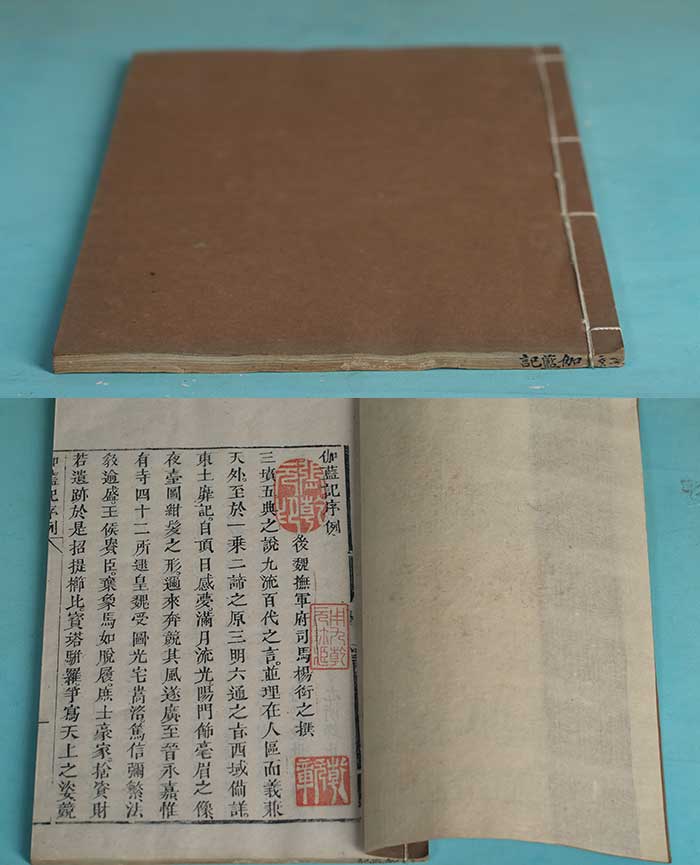 伽藍記
伽藍記序例
後魏撫軍府司馬楊衒之撰
三墳五典之說九流百代之言。並理在人區而義兼
天外。至於一乘二諦之原三明六通之旨西域備詳
東土靡記。自頂日感夢。滿月流光陽門飾毫眉之像
夜臺圖紺髮之形。邇來奔競其風遂廣至晉永嘉惟
有寺四十二所逮皇魏受圖光宅嵩洛篤信彌繁法
敎逾盛。王侯貴臣。棄象馬如脫屣。庶士豪家。捨資財
若遺跡於是招提櫛比寶塔駢羅爭寫天上之姿競
伽藍記序例